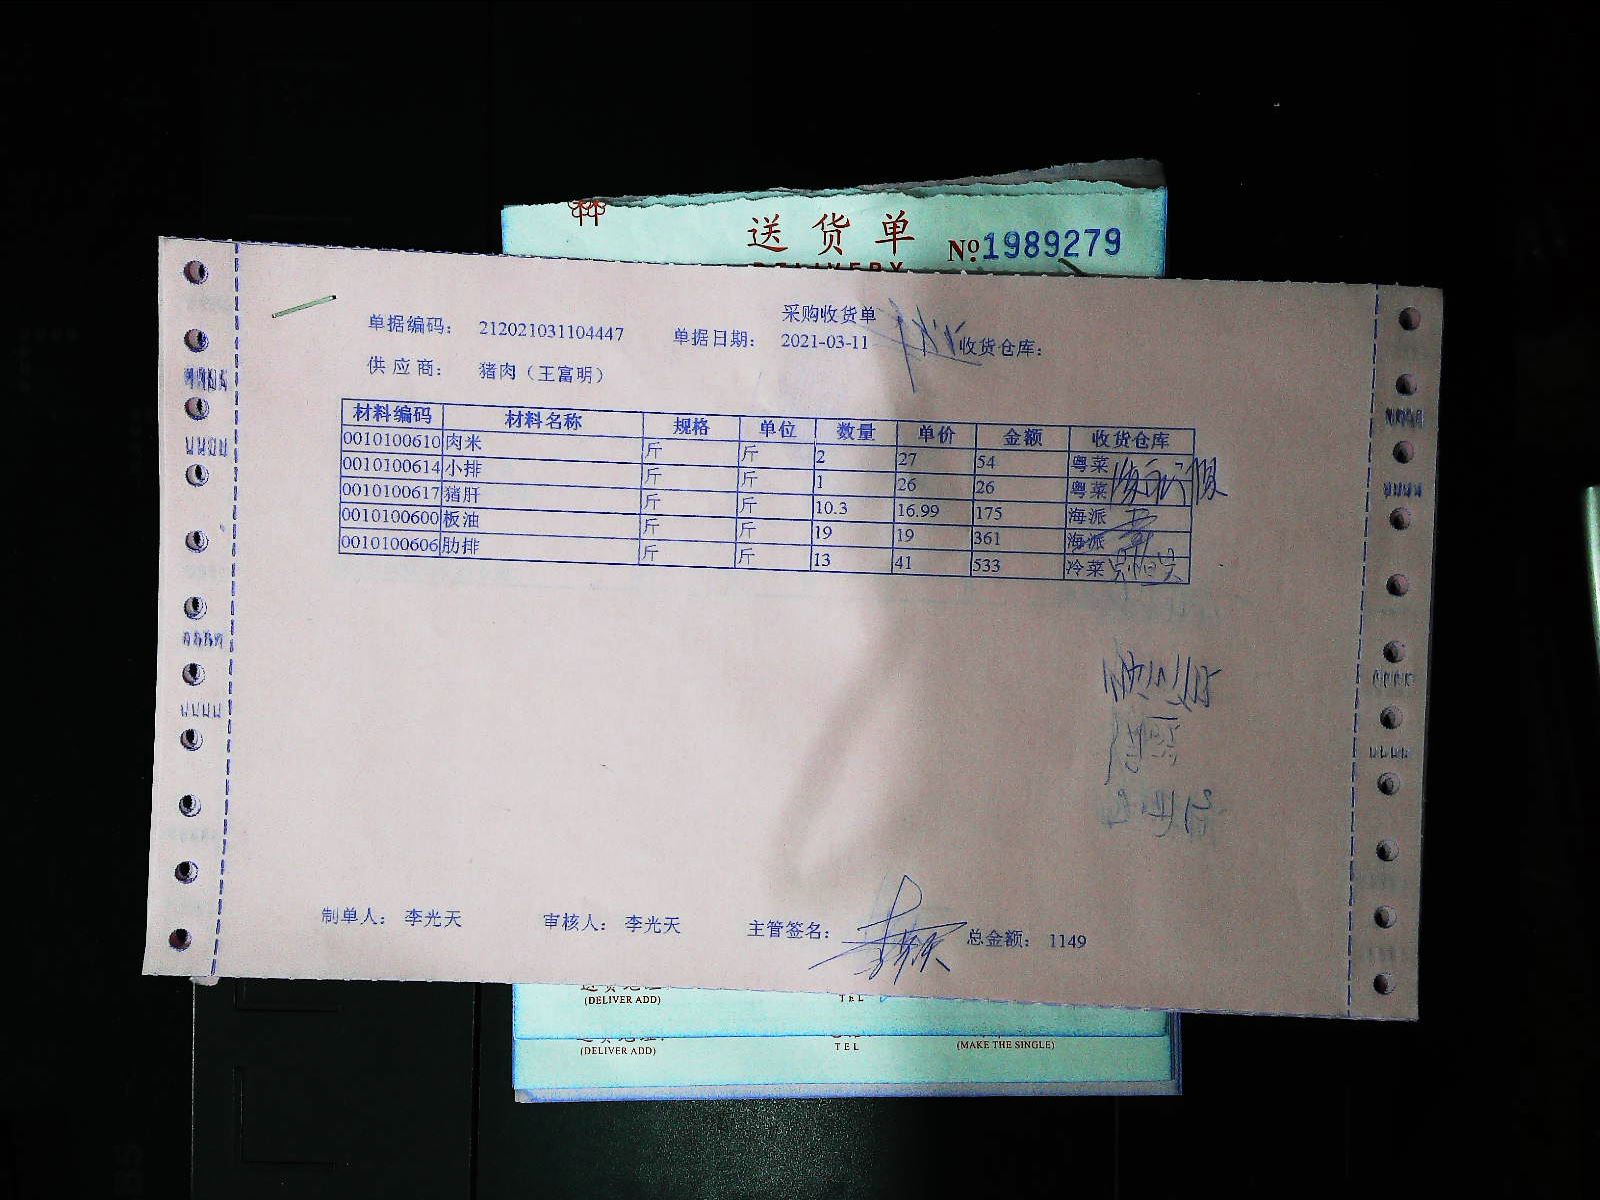 送货单 №1989279
采购收货单
单据编码： 212021031104447 单据日期： 2021-03-11 收货仓库：
供应商： 猪肉（王富明）
材料编码 材料名称 规格 单位 数量 单价 金额 收货仓库
0010100610 肉米 斤 斤 2 27 54 粤菜
0010100614 小排 斤 斤 1 26 26 粤菜
0010100617 猪肝 斤 斤 10.3 16.99 175 海派
0010100600 板油 斤 斤 19 19 361 海派
0010100606 肋排 斤 斤 13 41 533 冷菜
制单人： 李光天 审核人： 李光天 主管签名： 总金额： 1149
(DELIVER ADD) TEL
(DELIVER ADD) TEL (MAKE THE SINGLE)